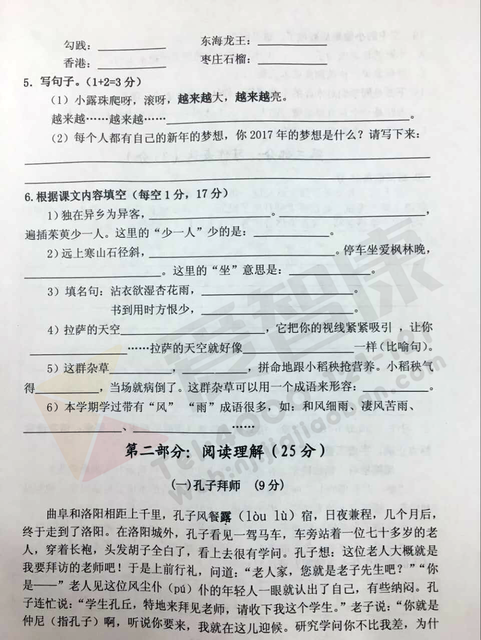 勾践：____________ 东海龙王：____________
香港：____________ 枣庄石榴：____________
5．写句子。（1+2=3 分）
（1）小露珠爬呀，滚呀，越来越大，越来越亮。
越来越……越来越……____________
（2）每个人都有自己的新年的梦想，你 2017 年的梦想是什么？请写下来：
6.根据课文内容填空（每空 1 分，17 分）
1）独在异乡为异客，____________。____________，
遍插茱萸少一人。这里的“少一人”少的是：____________。
2）远上寒山石径斜，____________。停车坐爱枫林晚，
____________。这里的“坐”意思是：____________。
3）填名句：沾衣欲湿杏花雨，____________。
书到用时方恨少，____________。
4）拉萨的天空____________，它把你的视线紧紧吸引，让你
____________……拉萨的天空就好像____________一样（比喻句）。
5）这群杂草____________，____________，拼命地跟小稻秧抢营养。小稻秧气
得____________，当场就病倒了。这群杂草可以用一个成语来形容：____________。
6）本学期学过带有“风”“雨”成语很多，如：和风细雨、凄风苦雨、
____________、____________……
第二部分：阅读理解（25 分）
（一）孔子拜师 （9 分）
曲阜和洛阳相距上千里，孔子风餐露（lòu lù）宿，日夜兼程，几个月后，
终于走到了洛阳。在洛阳城外，孔子看见一驾马车，车旁站着一位七十多岁的老
人，穿着长袍，头发胡子全白了，看上去很有学问。孔子想：这位老人大概就是
我要拜访的老师吧！于是上前行礼，问道：“老人家，您就是老子先生吧？”“你
是——”老人见这位风尘仆（pú）仆的年轻人一眼就认出了自己，有些纳闷。孔
子连忙说：“学生孔丘，特地来拜见老师，请收下我这个学生。”老子说：“你就是
仲尼（指孔子）啊，听说你要来，我就在这儿迎候。研究学问你不比我差，为什